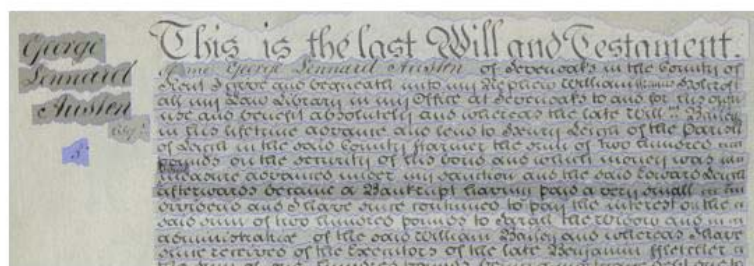 George
Lennard
Austen
Esq.
This is the last Will and Testament.
of me George Lennard Austen of Sevenoaks in the County of
Kent I give and bequeath unto my Nephew William
all my Law Library in my Office at Sevenoaks to and for his own
use and benefit absolutely and whereas the late Will. Bailey
in his lifetime advance and lend to Leigh of the Parish
of Leigh in the said County ffarmer the sum of two hundred
pounds on the security of his bond and which money was
advanced under my sanction and the said Edward
afterwards became a Bankrupt having paid a very small
dividend and I have since continued to pay the interest on the
said sum of two hundred pounds to Sarah the widow and
administratrix of the said William Bailey and whereas I have
since received of the Executors of the late Benjamin ffletcher
the sum of one hundred pounds